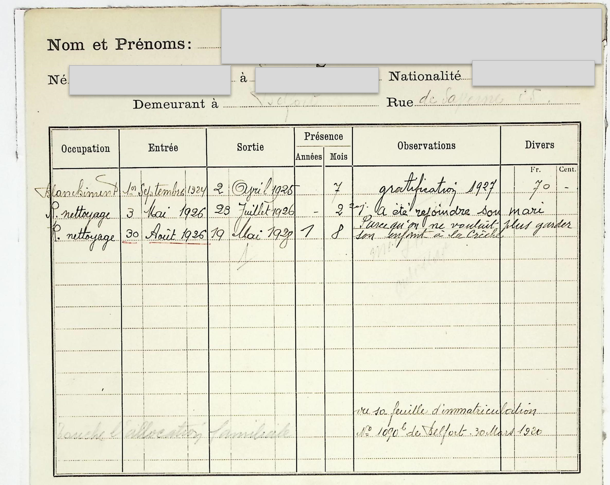 Nom et Prénoms:
Né à Nationalité
Demeurant à Rue
Occupation Entrée Sortie Présence Observations Divers
Années Mois
Fr. Cent.
Blanchiment 1er Septembre 1924 2 Avril 1925 7 gratification 1927 70 -
R. nettoyage 3 Mai 1926 23 Juillet 1926 - 2 A été rejoindre son mari
Parce qu'on ne voulait plus garder
R. nettoyage 30 Août 1926 19 Mai 1928 1 8 son enfant à la Crèche
vu sa feuille d'immatriculation
touche l'allocation familiale
No 1090 de Belfort 30 Mars 1920